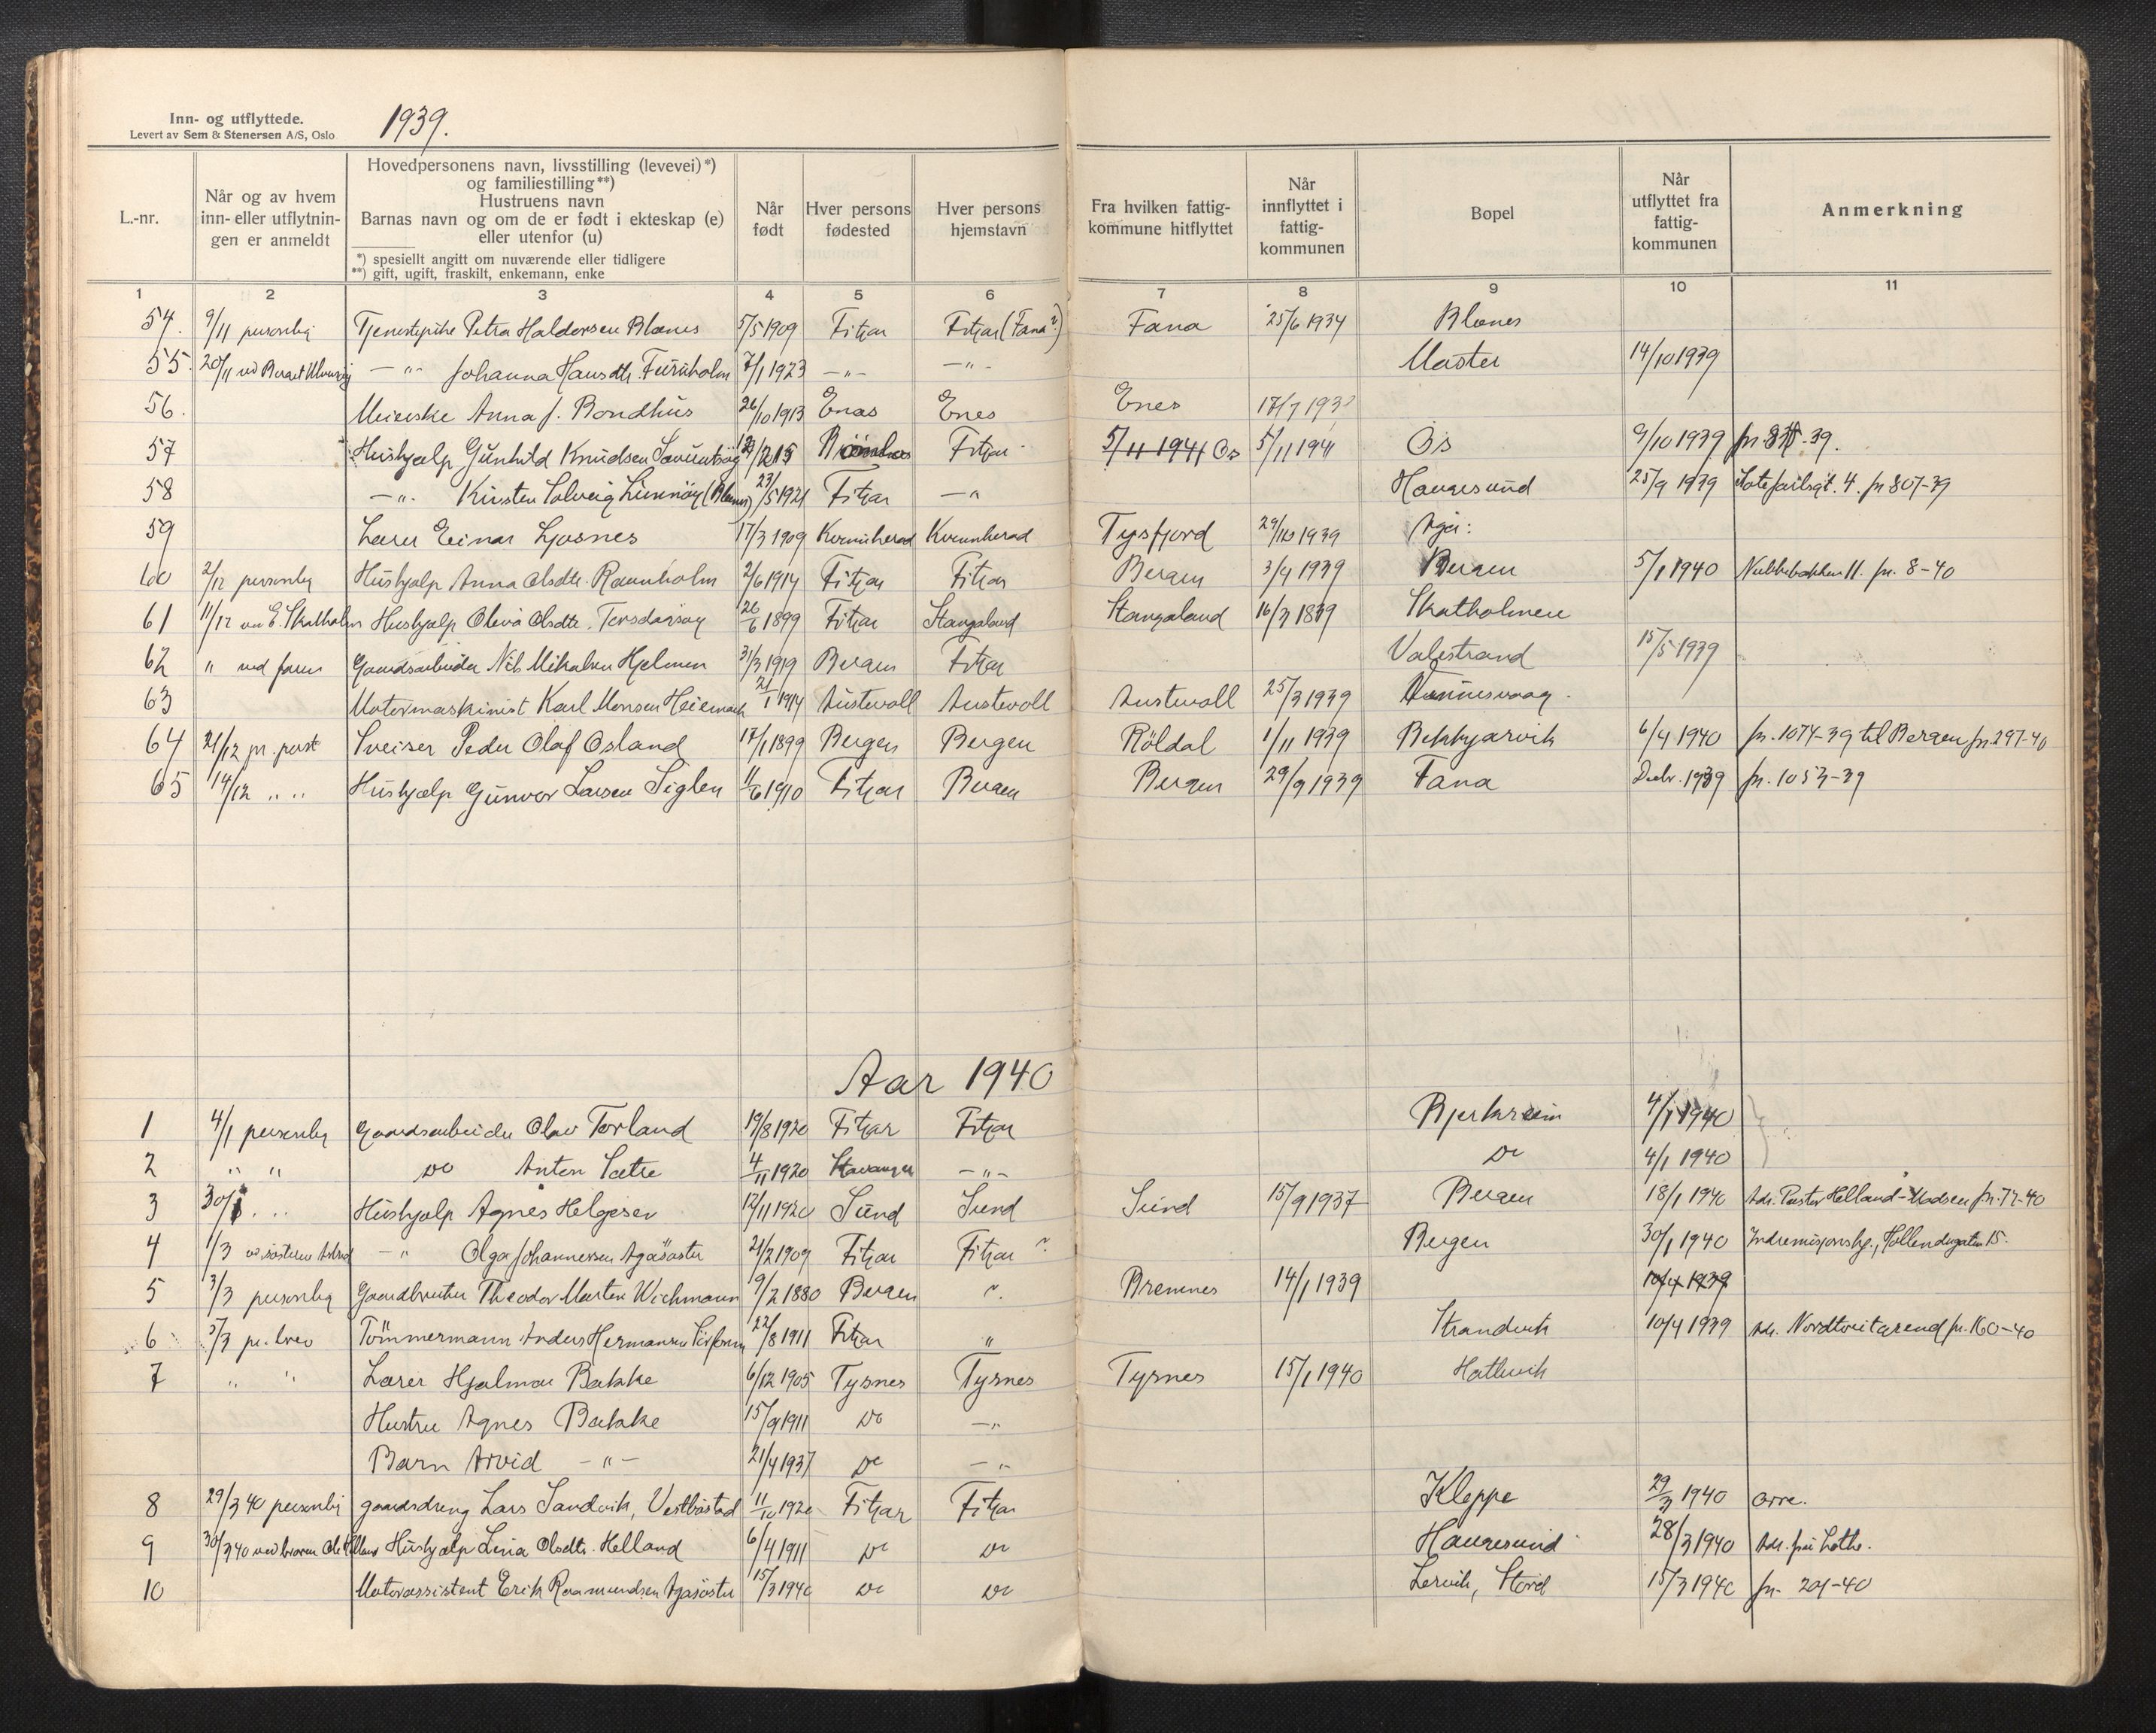 Inn- og utflyttede.
Levert av Sem & Stenersen A/S, Oslo
1939.
L.-nr.
Når og av hvem inn- eller utflytnin- gen er anmeldt
Hovedpersonens navn, livsstilling (levevei)*)
og familiestilling**)
Hustruens navn
Barnas navn og om de er født i ekteskap (e)
eller utenfor (u)
*) spesielt angitt om nuværende eller tidligere
**) gift, ugift, fraskilt, enkemann, enke
Når født
Hver persons fødested
Hver persons hjemstavn
Fra hvilken fattig- kommune hitflyttet
Når innflyttet i fattig- kommunen
Bopel
Når utflyttet fra fattig- kommunen
Anmerkning
1 2 3 4 5 6 7 8 9 10 11
54. 9/11 personlig Tjenestepike Petra Haldorsen Blænes 5/5 1909 Fitjar Fitjar (Fana?) Fana 25/6 1934 Blænes
55. 20/11 ved -"- Johanna Hansdtr. Furuholm 7/1 1923 -"- -"- Møster 14/10 1939
56. Meierske Anna J. Bondhus 26/10 1913 Enes Enes Enes 17/7 193
57 Hushjælp Gunhild Knudsen Fitjar 5/11 1941 Os 5/11 1941 Os 9/10 1939 jn. -39.
58 -"- Kirsten Solveig (Blænes) 23/5 1921 Fitjar -"- Haugesund 25/9 1939 4. jn 807-39
59 Lærer Einar Ljosnes 17/3 1909 Kvinnherad Kvinnherad Tysfjord 29/10 1939 Aga:
60 2/12 personlig Hushjælp Anna Olsdtr. Rævnholm 2/6 1914 Fitjar Fitjar Bergen 3/9 1939 Bergen 5/1 1940 Nubbebakken 11. jn. 8-40
61 11/12 ved E. Skatholm Hushjælp Oleva Olsdtr. 26/6 1899 Fitjar Stangaland Stangaland 16/3 1839 Skatholmen
62 " ved faren Gaardsarbeider Nils Mikalsen Hjelmen 31/3 1919 Bergen Fitjar Valestrand 15/5 1939
63 Motormaskinist Karl Monsen 21/1 1914 Austevoll Austevoll Austevoll 25/3 1939
64 21/12 pr. post Sveiser Peder Olaf Osland 17/1 1899 Bergen Bergen Röldal 1/11 1939 Bekkjarvik 6/4 1940 jn. 1074-39 til Bergen jn. 297-40
65 14/12 " " Hushjælp Gunvor Larsen Siglen 11/6 1910 Fitjar Bergen Bergen 29/9 1939 Fana Decbr. 1939 jn. 1053-39
Aar 1940
1 4/1 personlig Gaardsarbeider Olav Torland 19/8 1920 Fitjar Fitjar Bjerkreim 4/1 1940
2 " " do Anton Sætre 4/11 1920 Stavanger -"- do 4/1 1940
3 30/1 " " Hushjælp Agnes Helgesen 12/11 1920 Sund Sund Sund 15/9 1937 Bergen 18/1 1940 Adr. Pastor Helland-Madsen jn. 72-40
4 1/3 ved søsteren Astrid -"- Olga Johannessen Agasöster 21/2 1909 Fitjar Fitjar ? Bergen 30/1 1940 Indremisjonshj., Hollendergaten 15.
5 3/3 personlig Gaardbruker Theodor Morten Wichmann 9/2 1880 Bergen ". Bremnes 14/1 1939 10/4 1939
6 3/3 pr. brev Tömmermann Anders Hermansen 22/8 1911 Fitjar " Strandvik 10/4 1939 Adr. Nordtveitgrend jn. 160-40
7 " " Lærer Hjalmar Bakke 6/12 1905 Tysnes Tysnes Tysnes 15/1 1940 Hatlevik
Hustru Agnes Bakke 15/9 1911 do -"-
Barn Arvid -"- 21/4 1937 do -"-
8 29/3 40 personlig gaardsdreng Lars Sandvik, Vestböstad 11/10 1920 Fitjar Fitjar Kleppe 29/3 1940 Orre.
9 30/3 40 ved broren Ole Helland Hushjælp Lina Olsdtr. Helland 6/4 1911 do do Haugesund 28/3 1940 Adr. frú Lothe.
10 Motorassistent Erik Rasmundsen Agasöster 15/3 1940 do do Lervik, Stord 15/3 1940 jn. 201-40